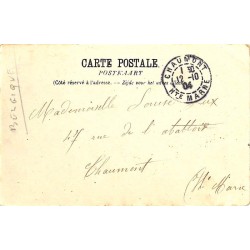 CARTE POSTALE.
POSTKAART
(Côté réservé à l'adresse. — Zijde voor het adres
CHAUMONT
12-10
04
HTE MARNE
BELGIQUE
Mademoiselle Louise
47 rue de l'abattoir
Chaumont
(Hte Marne